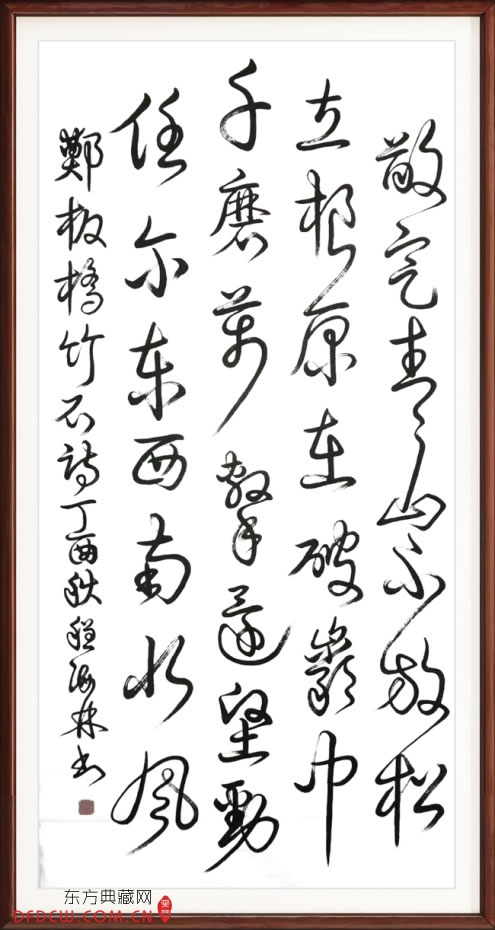 定青山不放松
立根原在破巖中
千磨萬擊還堅勁
任尔东西南北风
鄭板橋竹石詩丁酉秋程海林书
东方典藏网
DFDCW.COM.CN